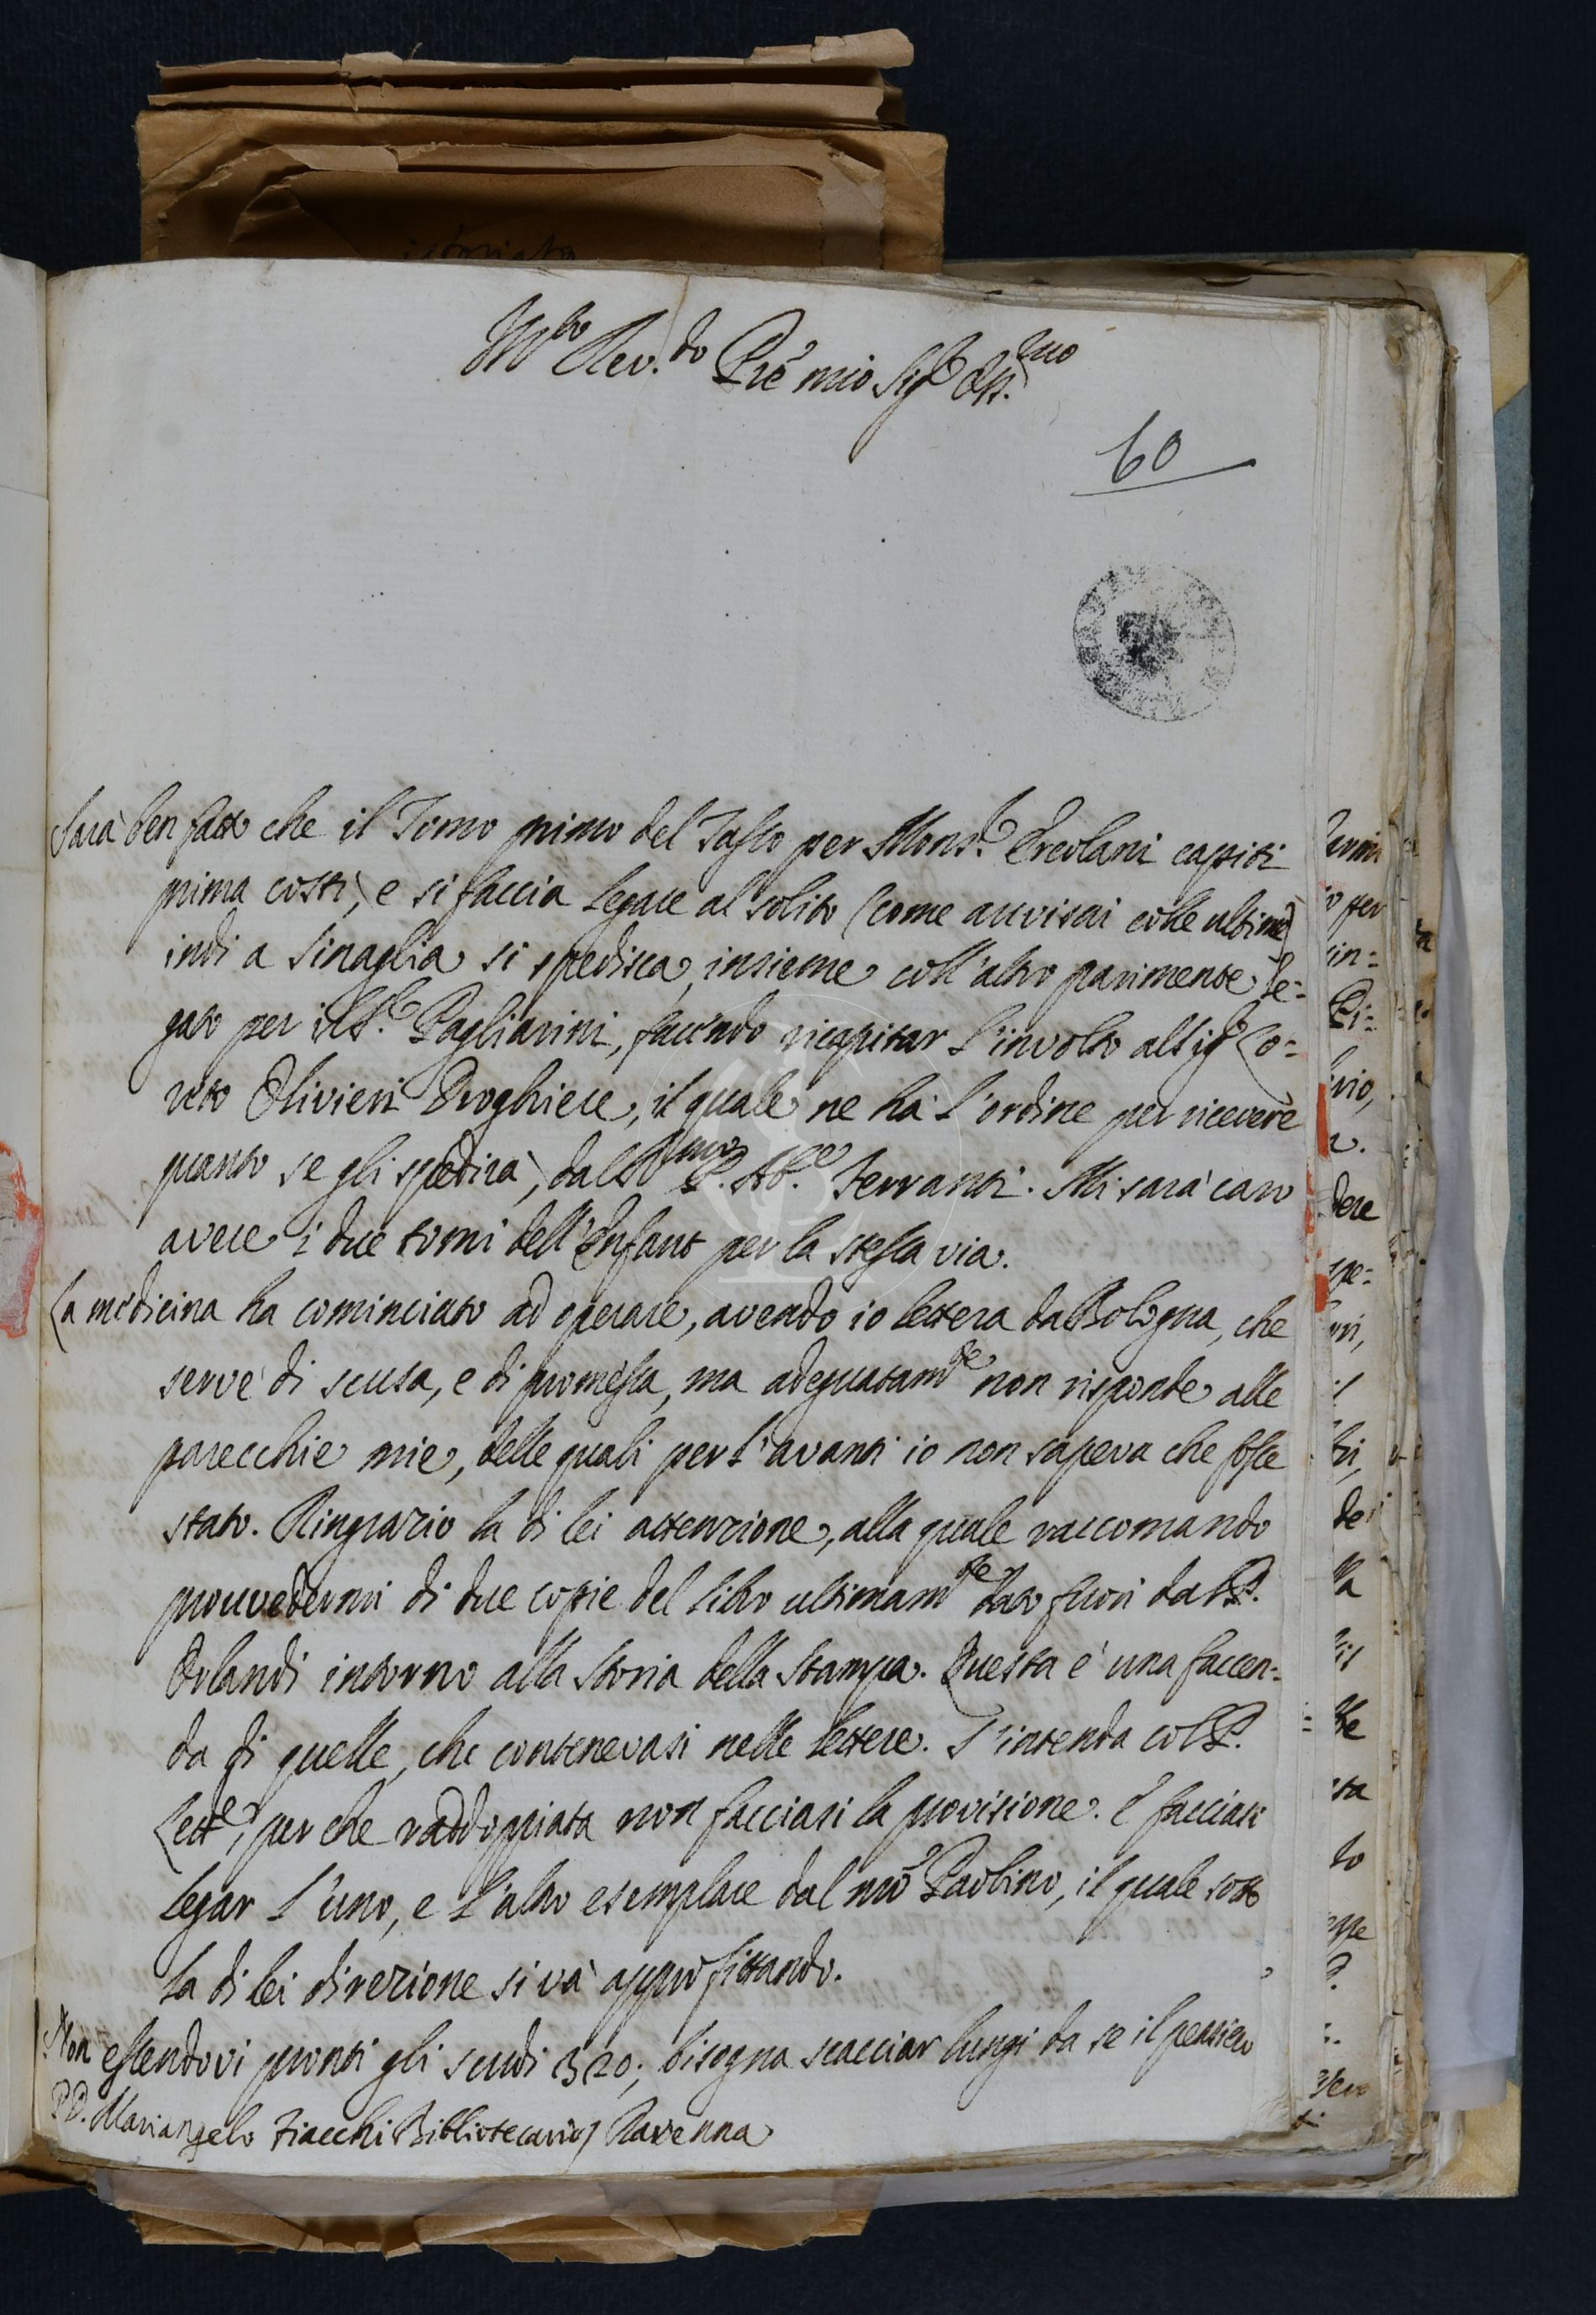 M.to Rev.do Prê mio Sig.r Oss.mo
60
Sarà ben fatto che il Tomo primo del Tasso per Mons.r Ercolani capiti
prima costì, e si faccia legare al solito (come avvisai colle ultime)
indi a Sinaglia si spedisca, insieme coll'altro parimente le=
gato per il S.r Pagliarini, facendo ricapitar l'involto al Sig.r Lo=
reto Olivieri Droghiere, il quale ne ha l'ordine per ricevere
quanto se gli spedirà, dal P. Ab.e Ferranti. Mi sarà caro
avere i due tomi dell'Enfant per la stessa via.
La medicina ha cominciato ad operare, avendo io lettera da Bologna, che
serve di scusa, e di promessa, ma adeguatam.te non risponde alle
parecchie mie, delle quali per l'avanti io non sapeva che fosse
stato. Ringrazio la di lei attenzione, alla quale raccomando
provvedermi di due copie del libro ultimam.te dato fuori dal P.
Orlandi intorno alla Storia della Stampa. Questa è una faccen=
da di quelle, che contenevasi nelle lettere. S'intenda col P.
Lett.e, per che raddoppiata non facciasi la provisione. E facciasi
legar l'uno, e l'altro esemplare dal nrô Paolino, il quale sotto
la di lei direzione si và approfittando.
Non essendovi pronti gli scudi 320; bisogna scacciar lungi da se il pensiero
P.D. Mariangelo Fiacchi Bibliotecario / Ravenna